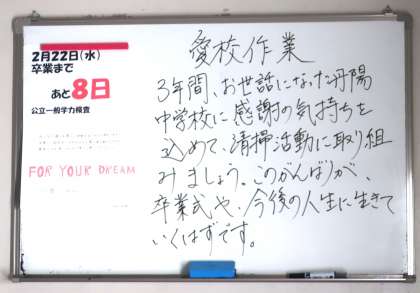 2月22日(水)
卒業まで
あと8日
公立一般学力検査
FOR YOUR DREAM
愛校作業
3年間、お世話になった丹陽
中学校に感謝の気持ちを
込めて、清掃活動に取り組
みましょう。このがんばりが、
卒業式や、今後の人生に生きて
いくはずです。